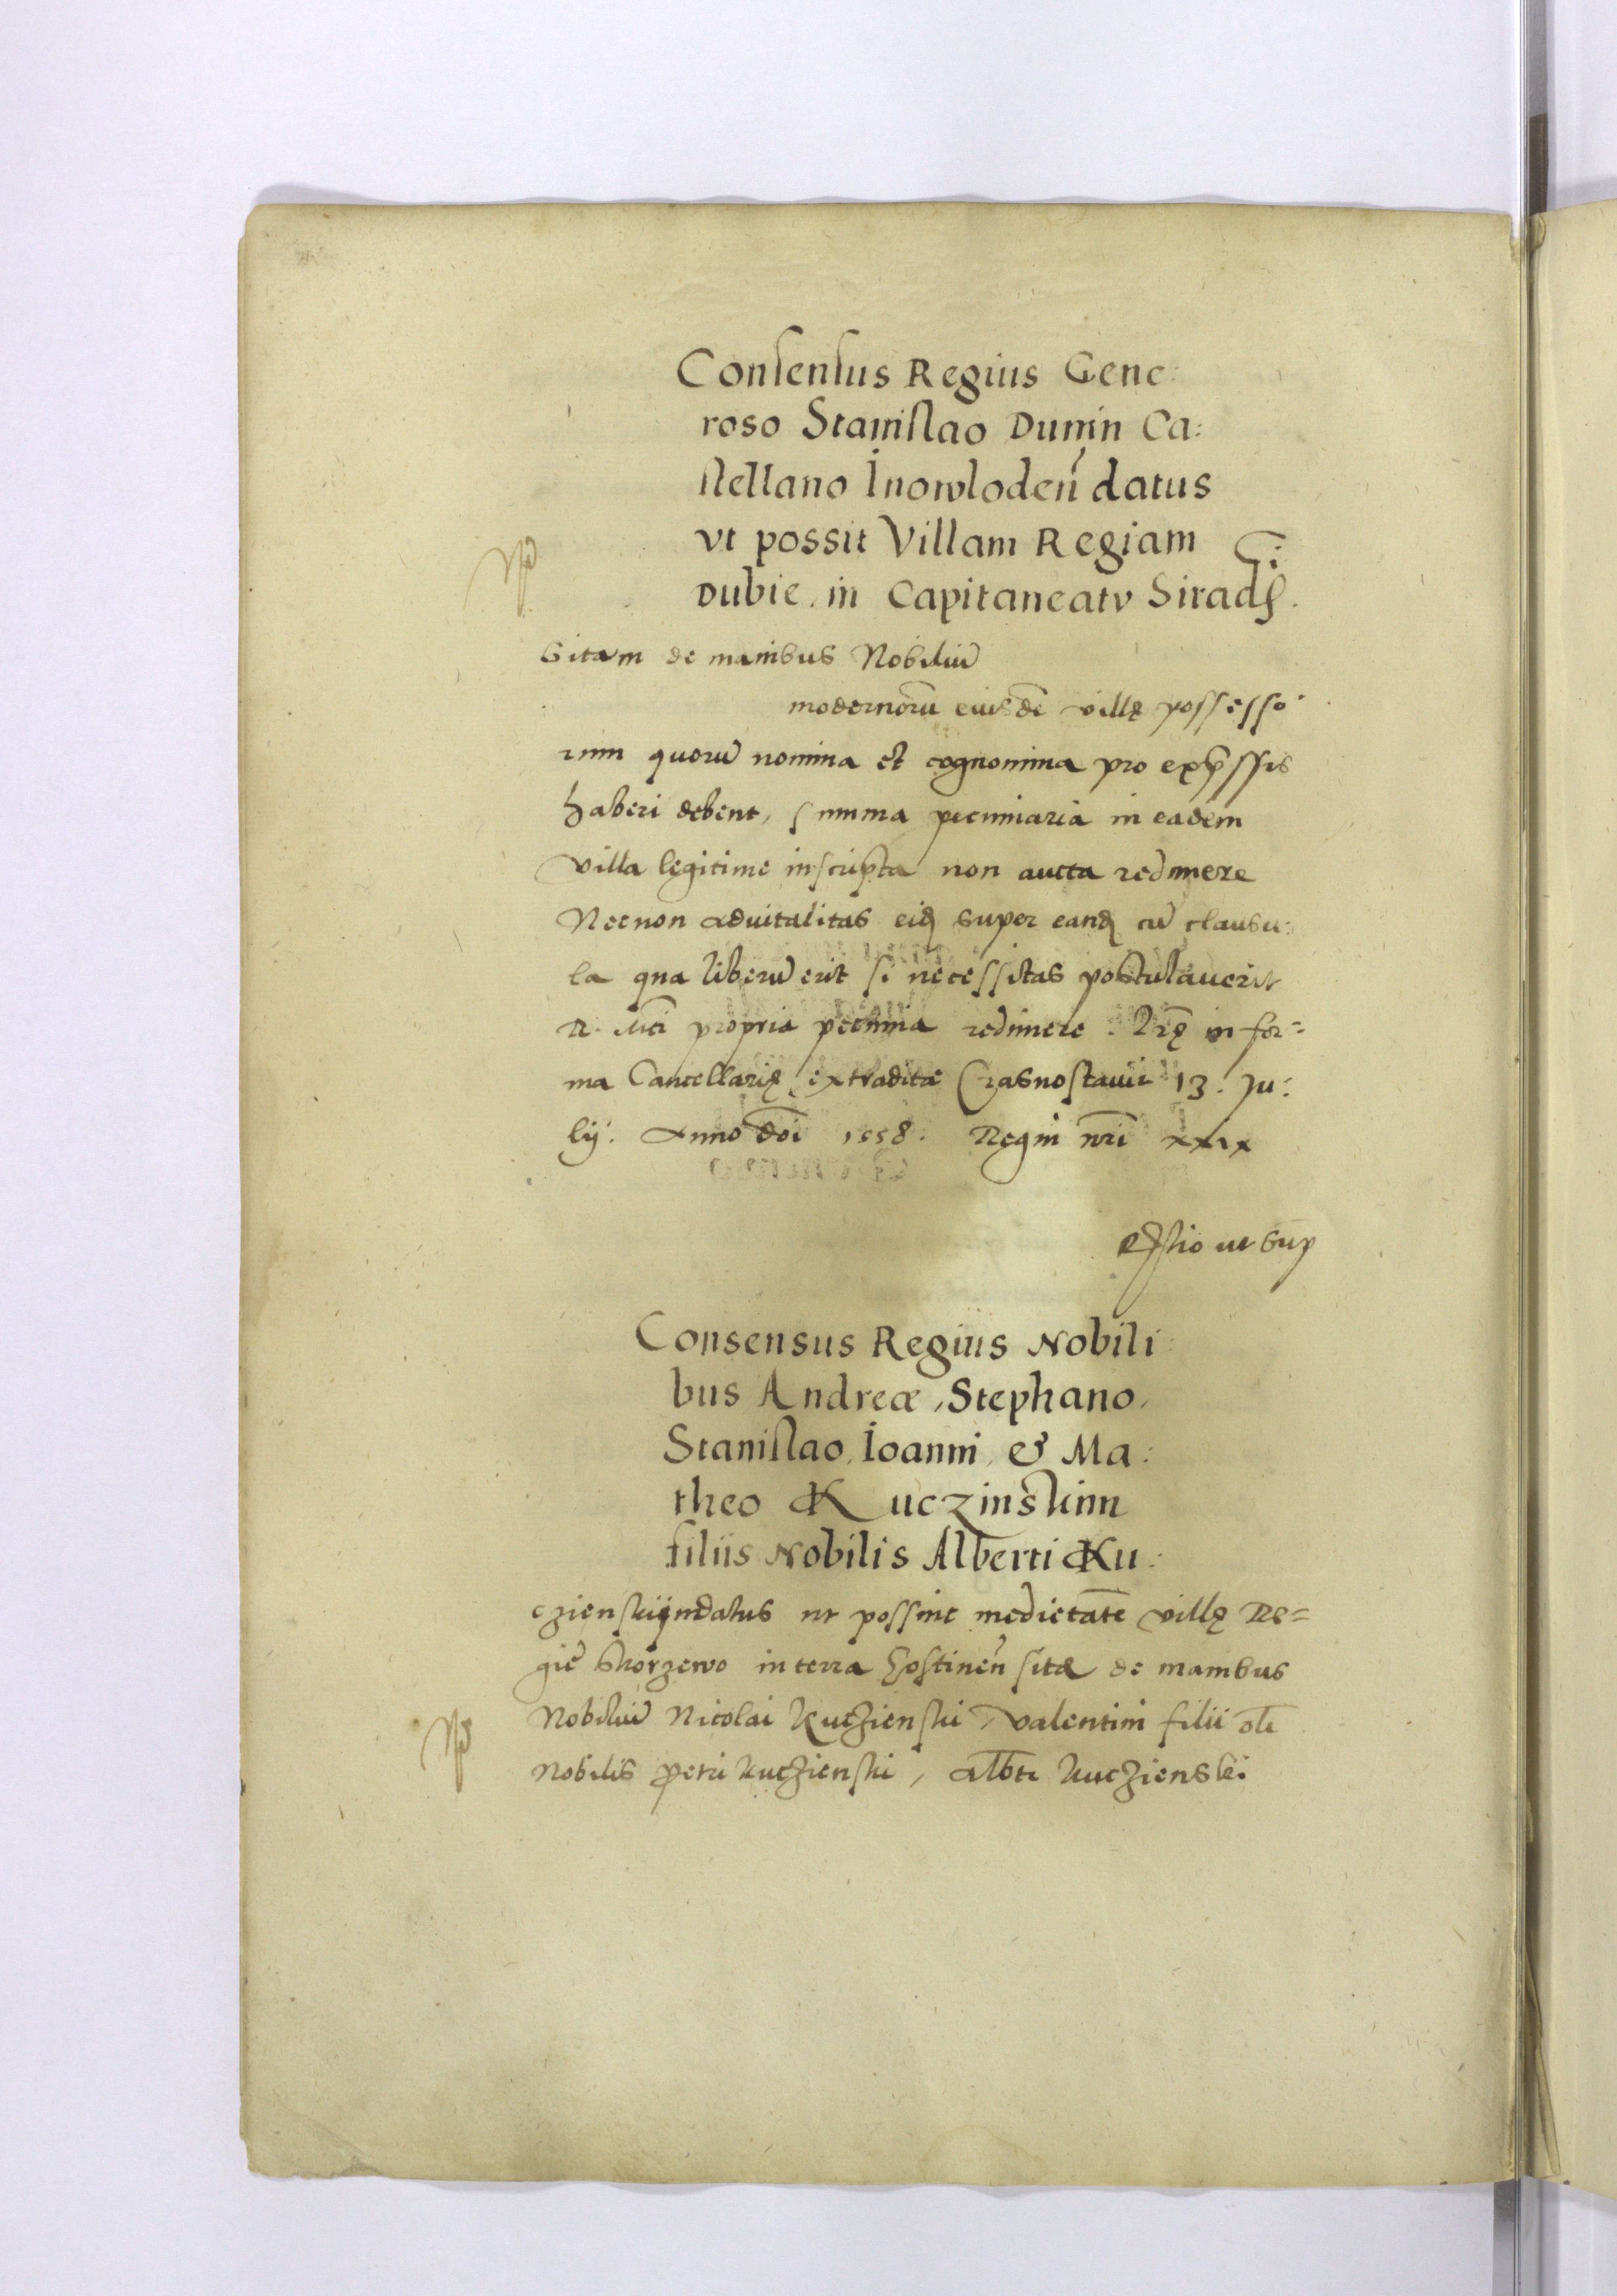 Consensus Regius Gene:
roso Stanislao Dunin Ca:
stellano Inowloden̄ datus
vt possit Villam Regiam
Dubie in Capitaneatv Sirad̄.
Sitam de manibus Nobiliū
modernorū eiusdē villę possesso:
rum quorū nomina et cognomina pro exp̄ssis
haberi debent, summa pecuniaria in eadem
villa legitime inscripta non aucta redimere
Necnon aduitalitas eid̄ super eand̄ cū clausu:
la qua liberū erit si necessitas postulauerit
R. Mti propria pecunia redimere. Lr̄ę in for=
ma Cancellarię extraditæ Crasnostauiæ 13. Ju:
lij. Anno dōi 1558. Regni nr̄i xxix
ut sup
Consensus Regius Nobili:
bus Andreæ, Stephano,
Stanislao, Ioanni, & Ma:
theo Kuczinskim
filiis Nobilis Alberti Ku:
czienskim datus ut possint medietatē villę Re=
gię Skorzewo in terra Gostinen̄ sitā de manibus
Nobiliū Nicolai Kuczienski, Valentini filii oli
Nobilis Petri Kuczienski, Albti Kuczienski